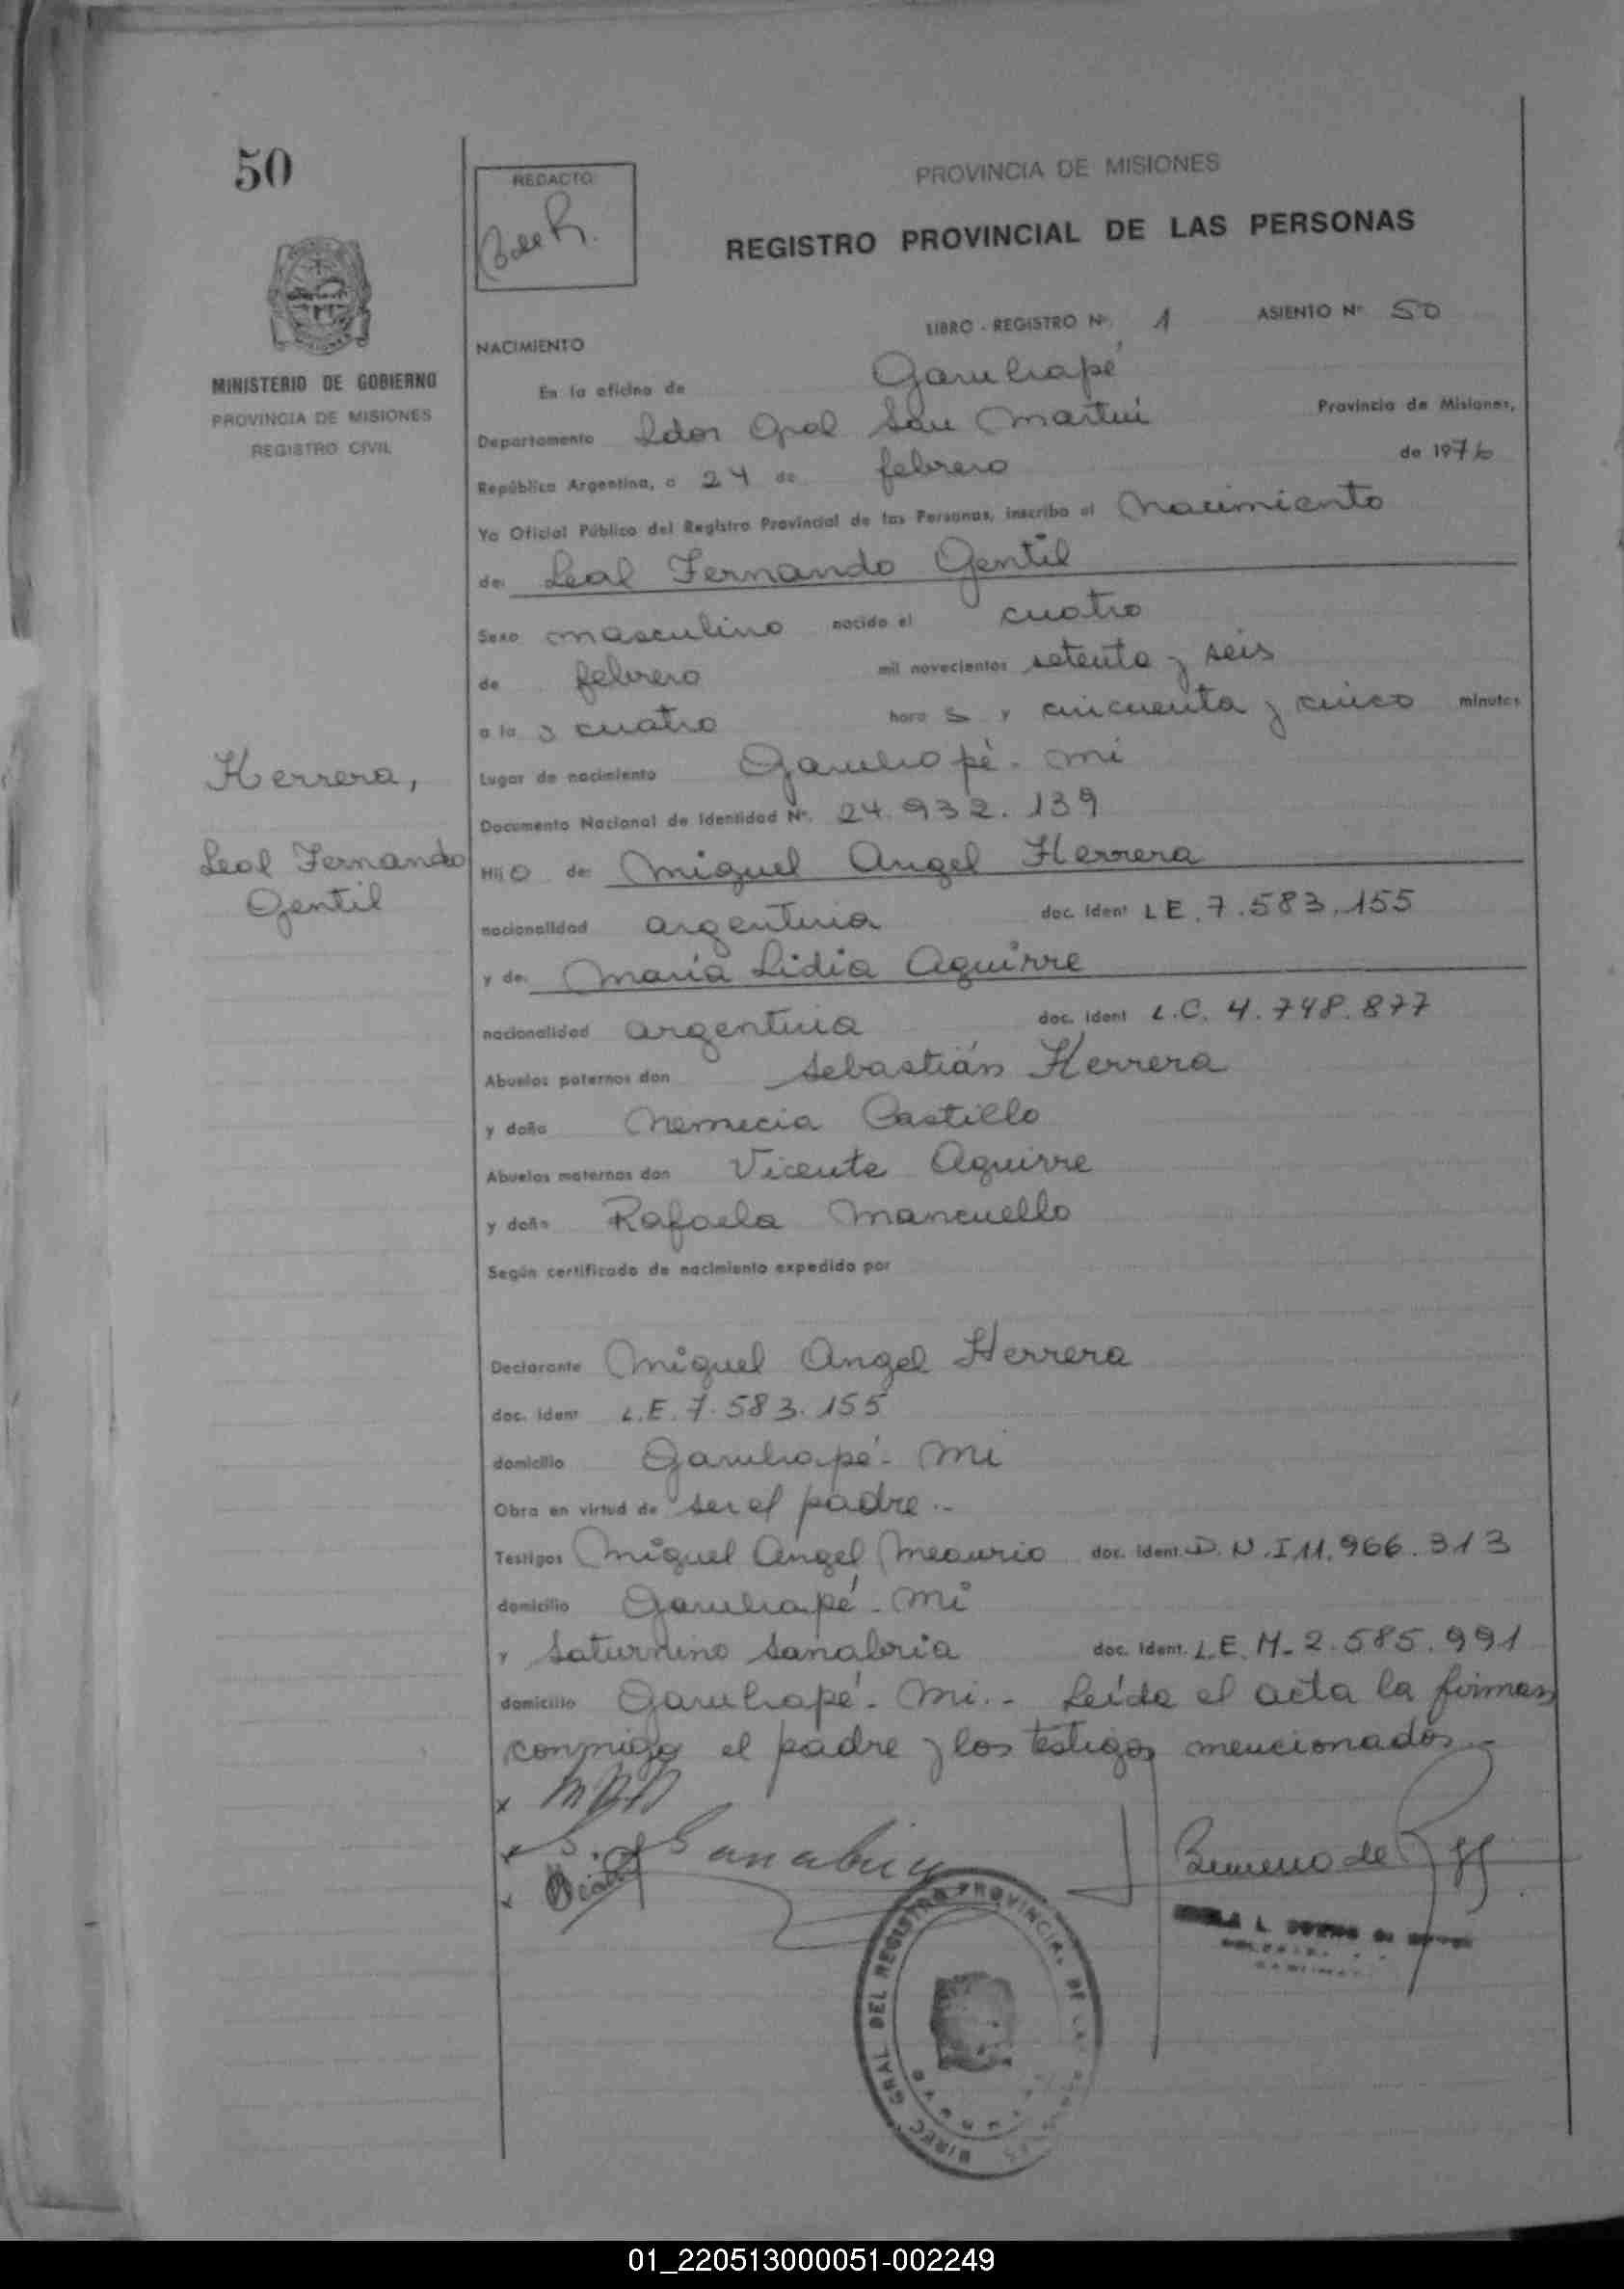 50
REDACTO
PROVINCIA DE MISIONES
REGISTRO PROVINCIAL DE LAS PERSONAS
LIBRO - REGISTRO Nº. 1 ASIENTO Nº 50
MINISTERIO DE GOBIERNO
PROVINCIA DE MISIONES
REGISTRO CIVIL
NACIMIENTO
En la oficina de Garuhapé
Departamento Ldor Gral San Martín Provincia de Misiones,
República Argentina, a 24 de febrero de 1976
Yo Oficial Público del Registro Provincial de las Personas, inscribo el Nacimiento
de: Leal Fernando Gentil
Sexo masculino nacido el cuatro
de febrero mil novecientos setenta y seis
a la s cuatro hora s y cincuenta y cinco minutos
Lugar de nacimiento Garuhapé - Mi
Documento Nacional de Identidad Nº. 24.932.139
Herrera,
Leal Fernando
Gentil
Hijo de: Miguel Angel Herrera
nacionalidad argentina doc. ident L E. 7.583.155
y de: María Lidia Aguirre
nacionalidad argentina doc. ident L.C. 4.748.877
Abuelos paternos don Sebastián Herrera
y doña Nemecia Castillo
Abuelos maternos don Vicente Aguirre
y doña Rafaela Mancuello
Según certificado de nacimiento expedido por
Declarante Miguel Angel Herrera
doc. ident L.E. 7.583.155
domicilio Garuhapé - Mi
Obra en virtud de ser el padre.-
Testigos Miguel Angel Meaurio doc. ident. D.N.I 11.966.313
domicilio Garuhapé - Mi
y Saturnino Sanabria doc. ident. L.E. M- 2.585.991
domicilio Garuhapé - Mi.- Leída el acta la firman
conmigo el padre y los testigos mencionados.-
x
x S. Sanabria
x
DIREC. GRAL DEL REGISTRO PROVINCIAL DE LAS
01_220513000051-002249